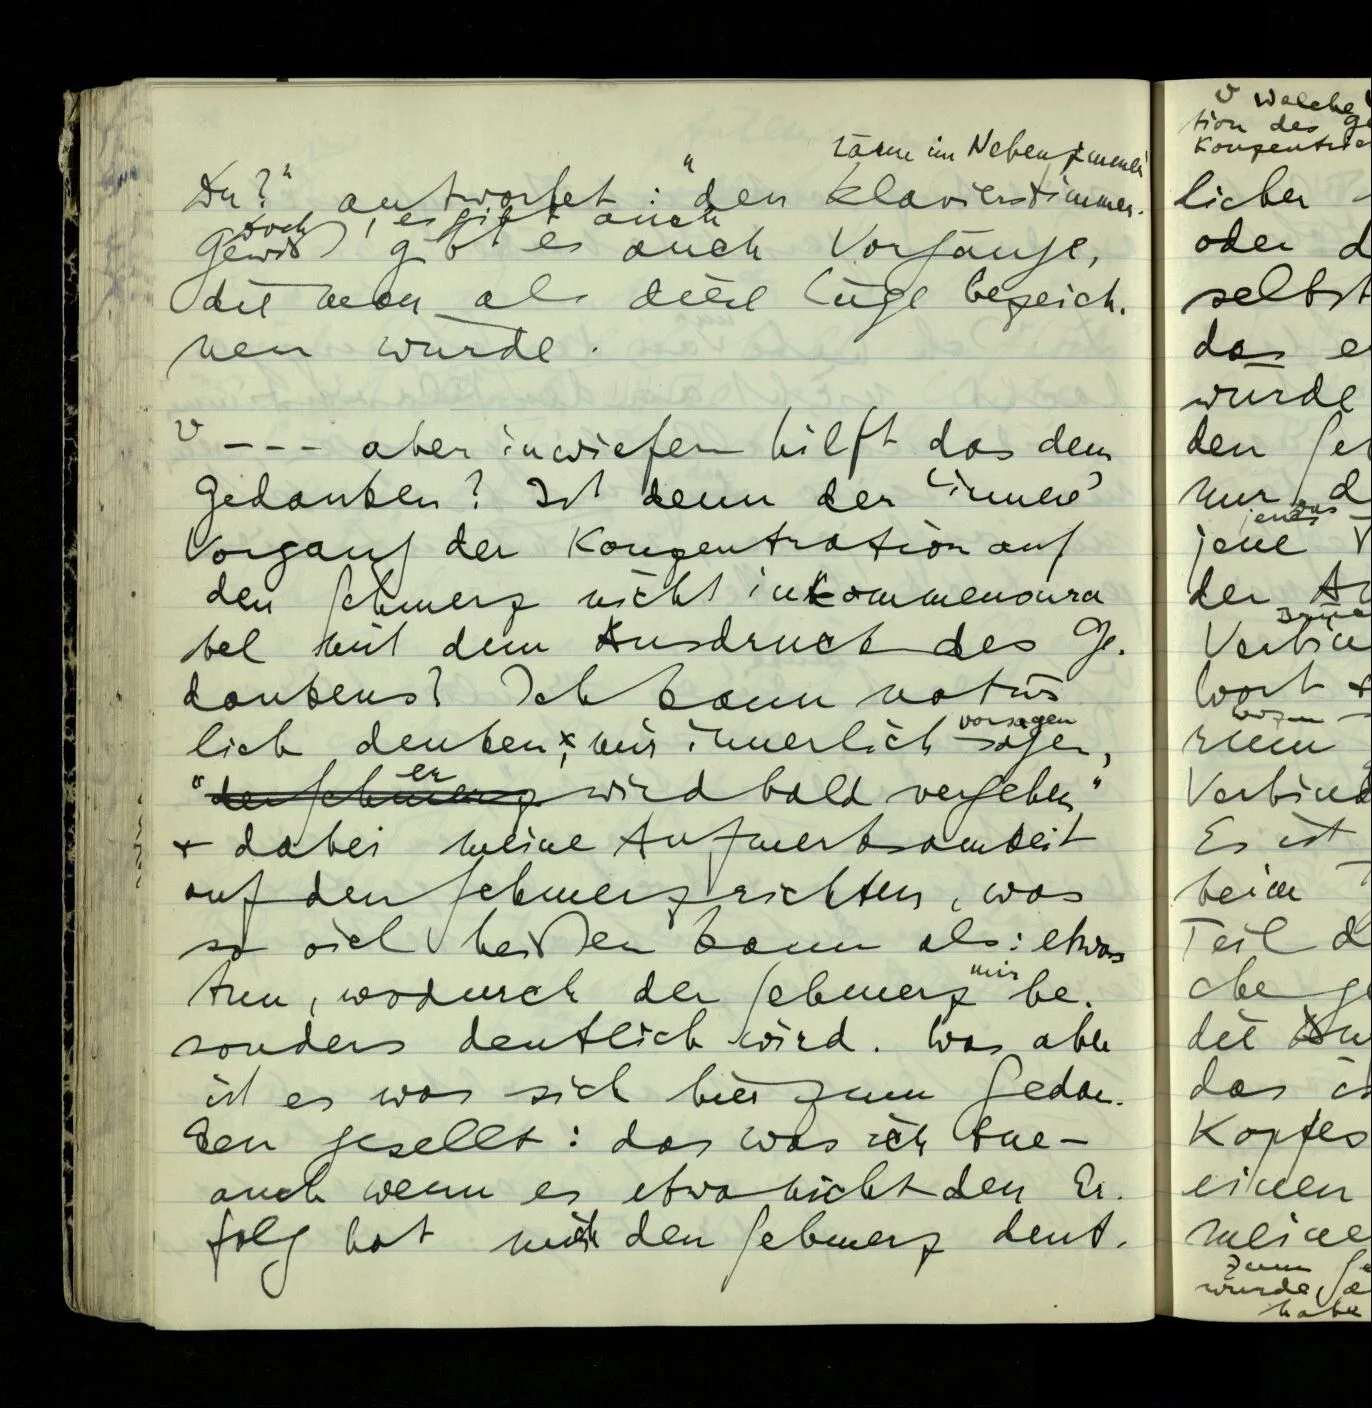 Lärm im Nebenzimmer
Du?" antwortet: "den Klavierstimmer.
doch, es gibt auch
Gewiß gibt es auch Vorgänge,
die man als diese Lüge bezeich-
nen würde.
v --- aber inwiefern hilft das dem
Gedanken? Ist denn der 'innere'
Vorgang der Konzentration auf
den Schmerz nicht inkommensura
bel mit dem Ausdruck des Ge-
dankens? Ich kann natür
lich denken, mir innerlich sagen,
vorsagen
er
"der Schmerz wird bald vergehen"
+ dabei meine Aufmerksamkeit
auf den Schmerz richten, was
so viel heißen kann als: etwas
mir
tun, wodurch der Schmerz be-
sonders deutlich wird. Was aber
ist es was sich hier zum Gedan-
ken gesellt: das was ich tue –
auch wenn es etwa nicht den Er-
folg hat mir den Schmerz deut-
v Welche
tion des
Konzentra
licher
oder d
selbst
das e
würde
den
nur d
jenes das
jene V
der
Verbin
Wort +
wozu
zum
Verbind
Es ist
beim T
Teil d
che ge
die
das is
Kopfes
einen
meine
zum Ge
würde,
habe